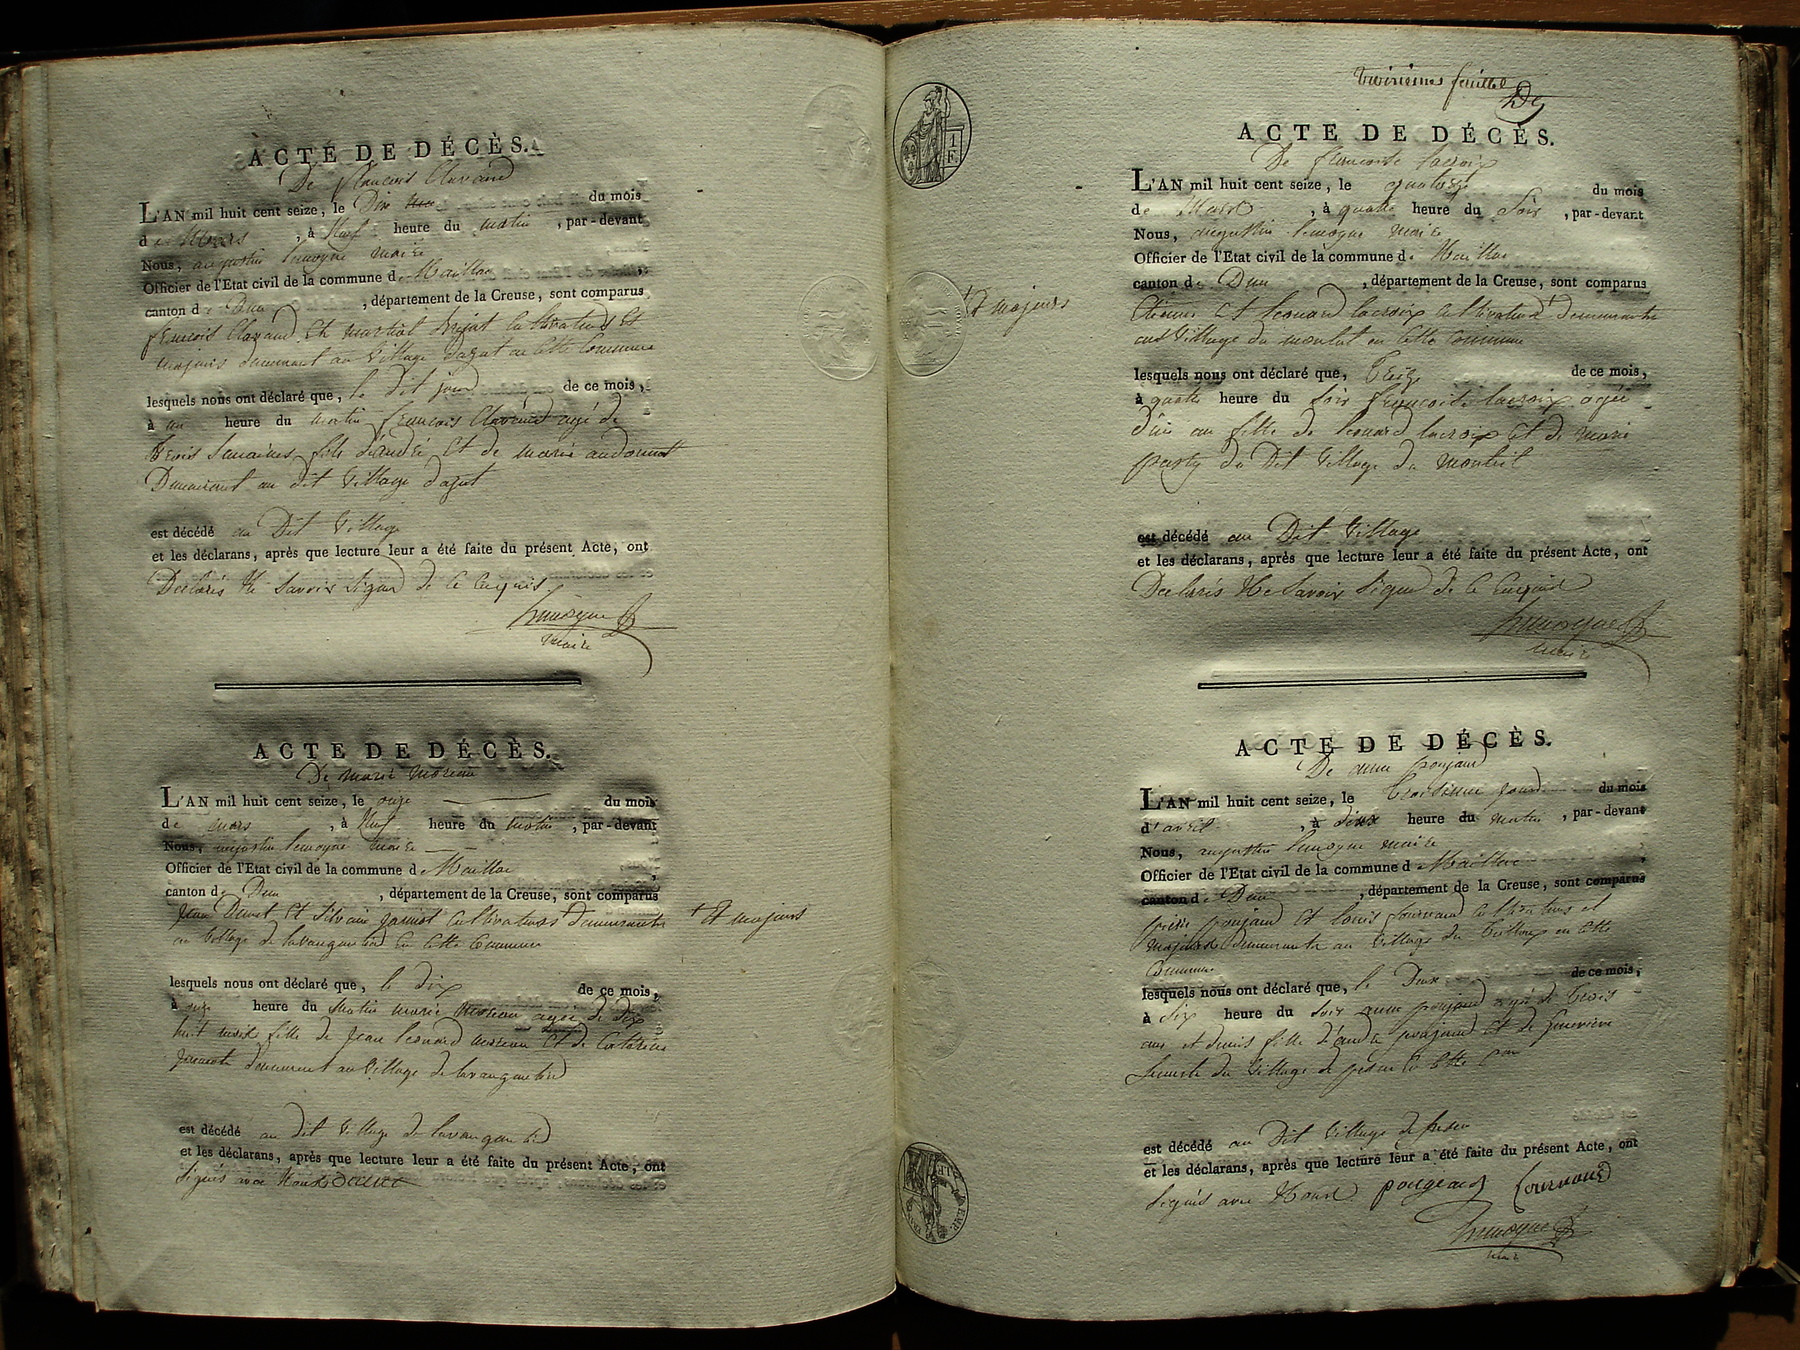 ACTE DE DÉCÈS.
De françois Clavaud
L'AN mil huit cent seize, le Dix du mois
de Mars, à Neuf heure du matin, par-devant
Nous, augustin Lemoyne maire
Officier de l'Etat civil de la commune de Maillac
canton de Dun, département de la Creuse, sont comparus
françois Clavaud Et martial Cultivateurs Et
majeurs demeurant au Village dagut en Cette Commune
lesquels nous ont déclaré que, le dit jour de ce mois,
à un heure du matin françois Clavaud agé de
trois Semaines fils d'andré Et de marie
Demeurant au dit Village dagut
est décédé au Dit Village
et les déclarans, après que lecture leur a été faite du présent Acte, ont
Déclarés Ne Savoir Signer de Ce Enquis
Lemoyne
maire
ACTE DE DÉCÈS.
De marie moreau
L'AN mil huit cent seize, le onze du mois
de mars, à Neuf heure du matin, par-devant
Nous, augustin Lemoyne maire
Officier de l'Etat civil de la commune de Maillac
canton de Dun, département de la Creuse, sont comparus
Jean Et Silvain Cultivateurs + demeurants + Et majeurs
au Village de en Cette Commune
lesquels nous ont déclaré que, le dix de ce mois,
à onze heure du matin marie moreau agée de dix
huit mois fille de Jean Leonard moreau Et de
demeurant au Village de
est décédé au dit Village de
et les déclarans, après que lecture leur a été faite du présent Acte, ont
Signés avec Nous
troisieme feuillet
ACTE DE DÉCÈS.
De françoise Lacroix
L'AN mil huit cent seize, le quatorze du mois
de Mars, à quatre heure du Soir, par-devant
Nous, augustin Lemoyne maire
Officier de l'Etat civil de la commune de Maillac
canton de Dun, département de la Creuse, sont comparus
+ Et majeurs
Etienne Et Leonard Lacroix Cultivateurs + demeurants
au Village du en Cette Commune
lesquels nous ont déclaré que, Treize de ce mois,
à quatre heure du Soir françoise Lacroix agée
d'un an fille de Leonard Lacroix Et de marie
du Dit Village du
est décédé au Dit Village
et les déclarans, après que lecture leur a été faite du présent Acte, ont
Déclarés Ne Savoir Signer de Ce Enquis
Lemoyne
maire
ACTE DE DÉCÈS.
De anne poujaud
L'AN mil huit cent seize, le Troisieme jour du mois
d'avril, à dixx heure du matin, par-devant
Nous, augustin Lemoyne maire
Officier de l'Etat civil de la commune de Maillac
canton de Dun, département de la Creuse, sont comparus
poujaud Et Louis Cultivateurs et
majeurs demeurants au Village du en Cette
Commune
lesquels nous ont déclaré que, le Deux de ce mois,
à Six heure du Soir anne poujaud agée de Trois
ans et demis fille d'andré poujaud Et de
du Village de en Cette
est décédé au Dit Village de
et les déclarans, après que lecture leur a été faite du présent Acte, ont
Signés avec Nous pougeaud
Lemoyne
maire